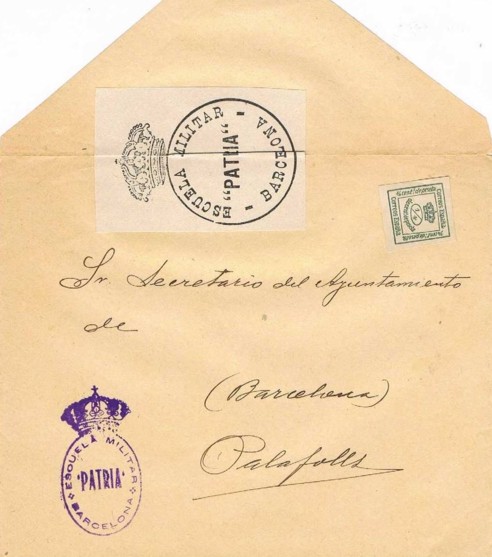 ESCUELA MILITAR
„PATRIA”
- BARCELONA -
Sr. Secretario del Ayuntamiento
de
(Barcelona)
Palafolls
ESCUELA MILITAR
"PATRIA"
BARCELONA